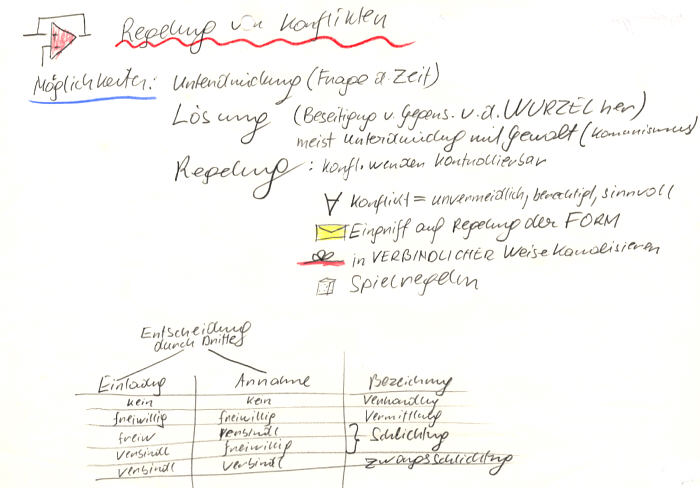 Regelung von Konflikten
Möglichkeiten: Unterdrückung (Frage d. Zeit)
Lösung (Beseitigung v. Gegens. v. d. WURZEL her)
meist Unterdrückung mit Gewalt (Komunismus)
Regelung: Konfl. werden kontrollierbar
∀ Konflikt = unvermeidlich, berechtigt, sinnvoll
Eingriff auf Regelung der FORM
in VERBINDLICHER Weise Kanalisieren
Spielregeln
Entscheidung
durch Dritte
Einladung Annahme Bezeichnung
kein kein Verhandlung
freiwillig freiwillig Vermittlung
freiw verbindl } Schlichtung
verbindl freiwillig
verbindl verbindl Zwangsschlichtung